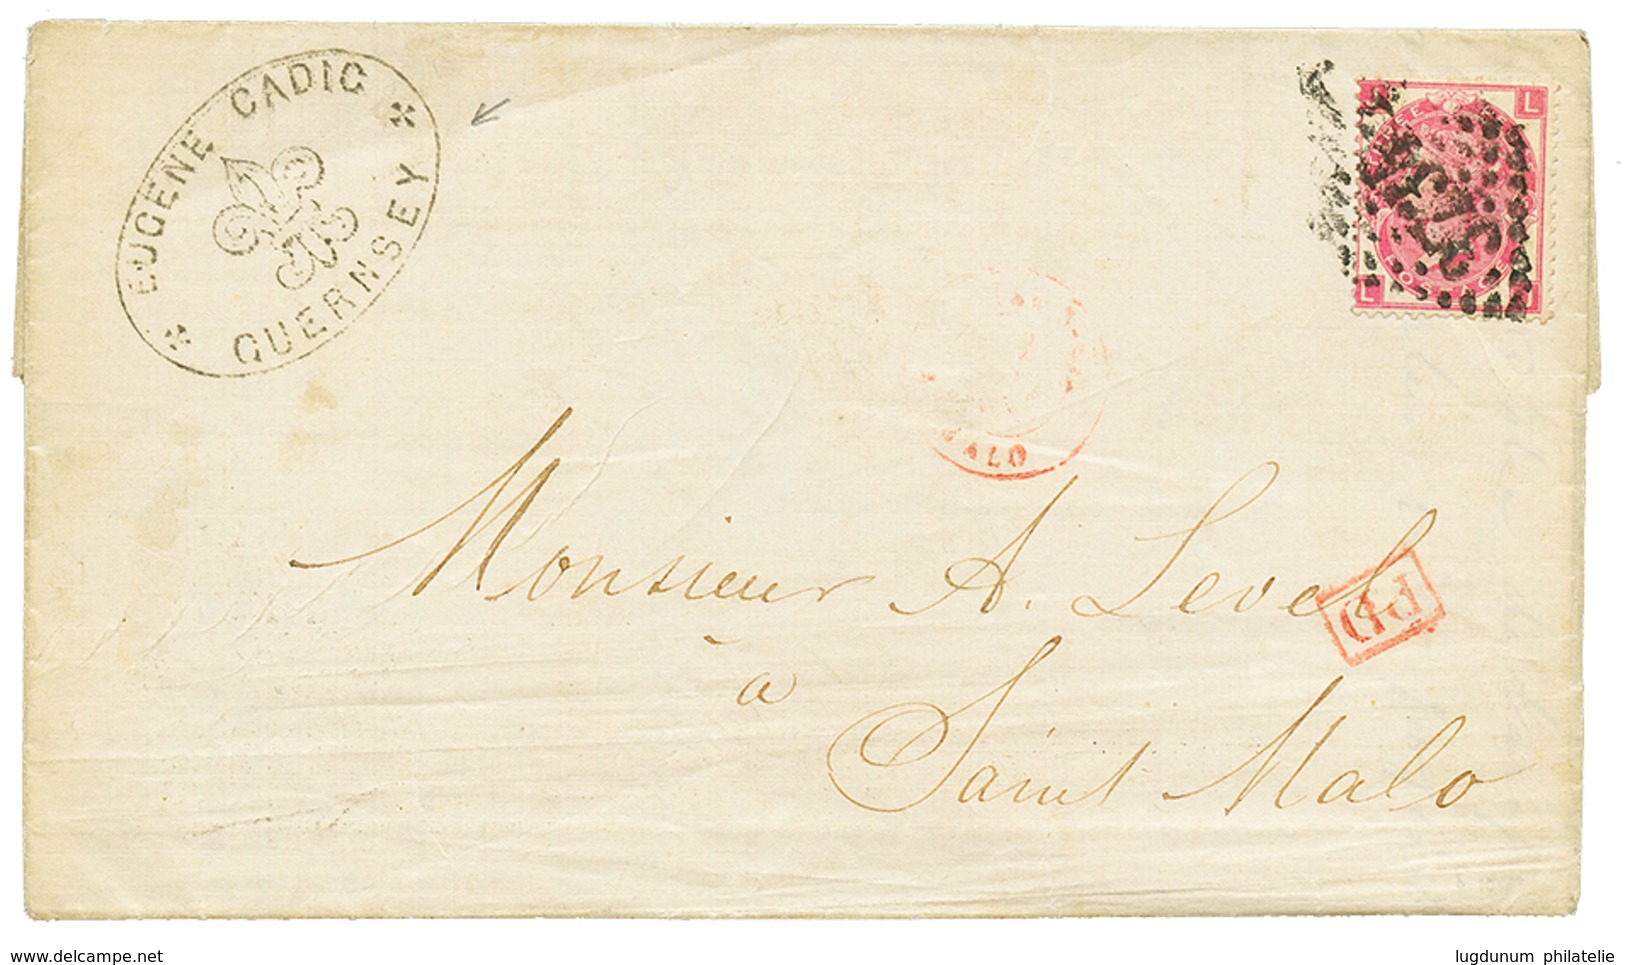 EUGENE CADIC
GUERNSEY
L
L J
POSTAGE
MALO
PD
Monsieur A. Level
à
Saint Malo
delcampe.net
lugdunum philatelie